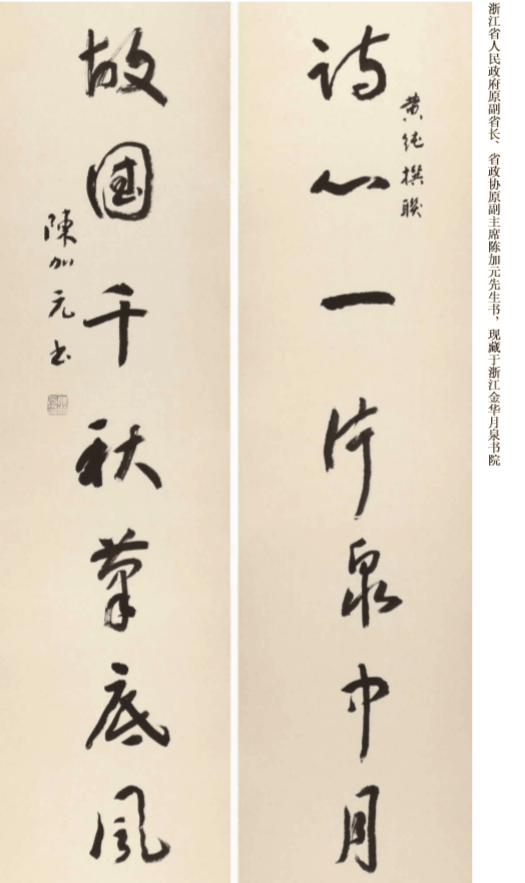 浙江省人民政府原副省长、省政协原副主席陈加元先生书，现藏于浙江金华月泉书院
黄纯撰联
诗心一片泉中月
故国千秋笔底风
陳加元书